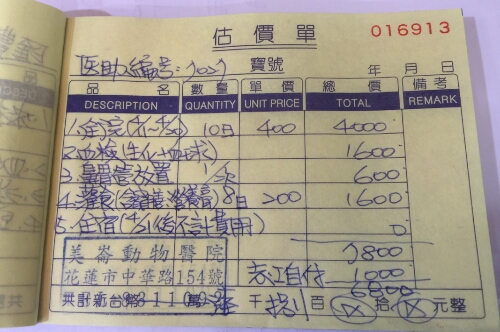 估價單
016913
医助編号：
寶號
年 月 日
品 名 數量 單價 總價 備考
DESCRIPTION QUANTITY UNIT PRICE TOTAL REMARK
1.住院(4/1~4/30) 10日 400 4000
2.血檢(生化+血球) 1600
3.鼻胃管放置 1次 600
8日 200 1600
5.住宿(4/31後不計費用) 0
7800
美崙動物醫院
花蓮市中華路154號
志工自付 1000
6800
共計新台幣 萬 千 捌 百 拾 元整